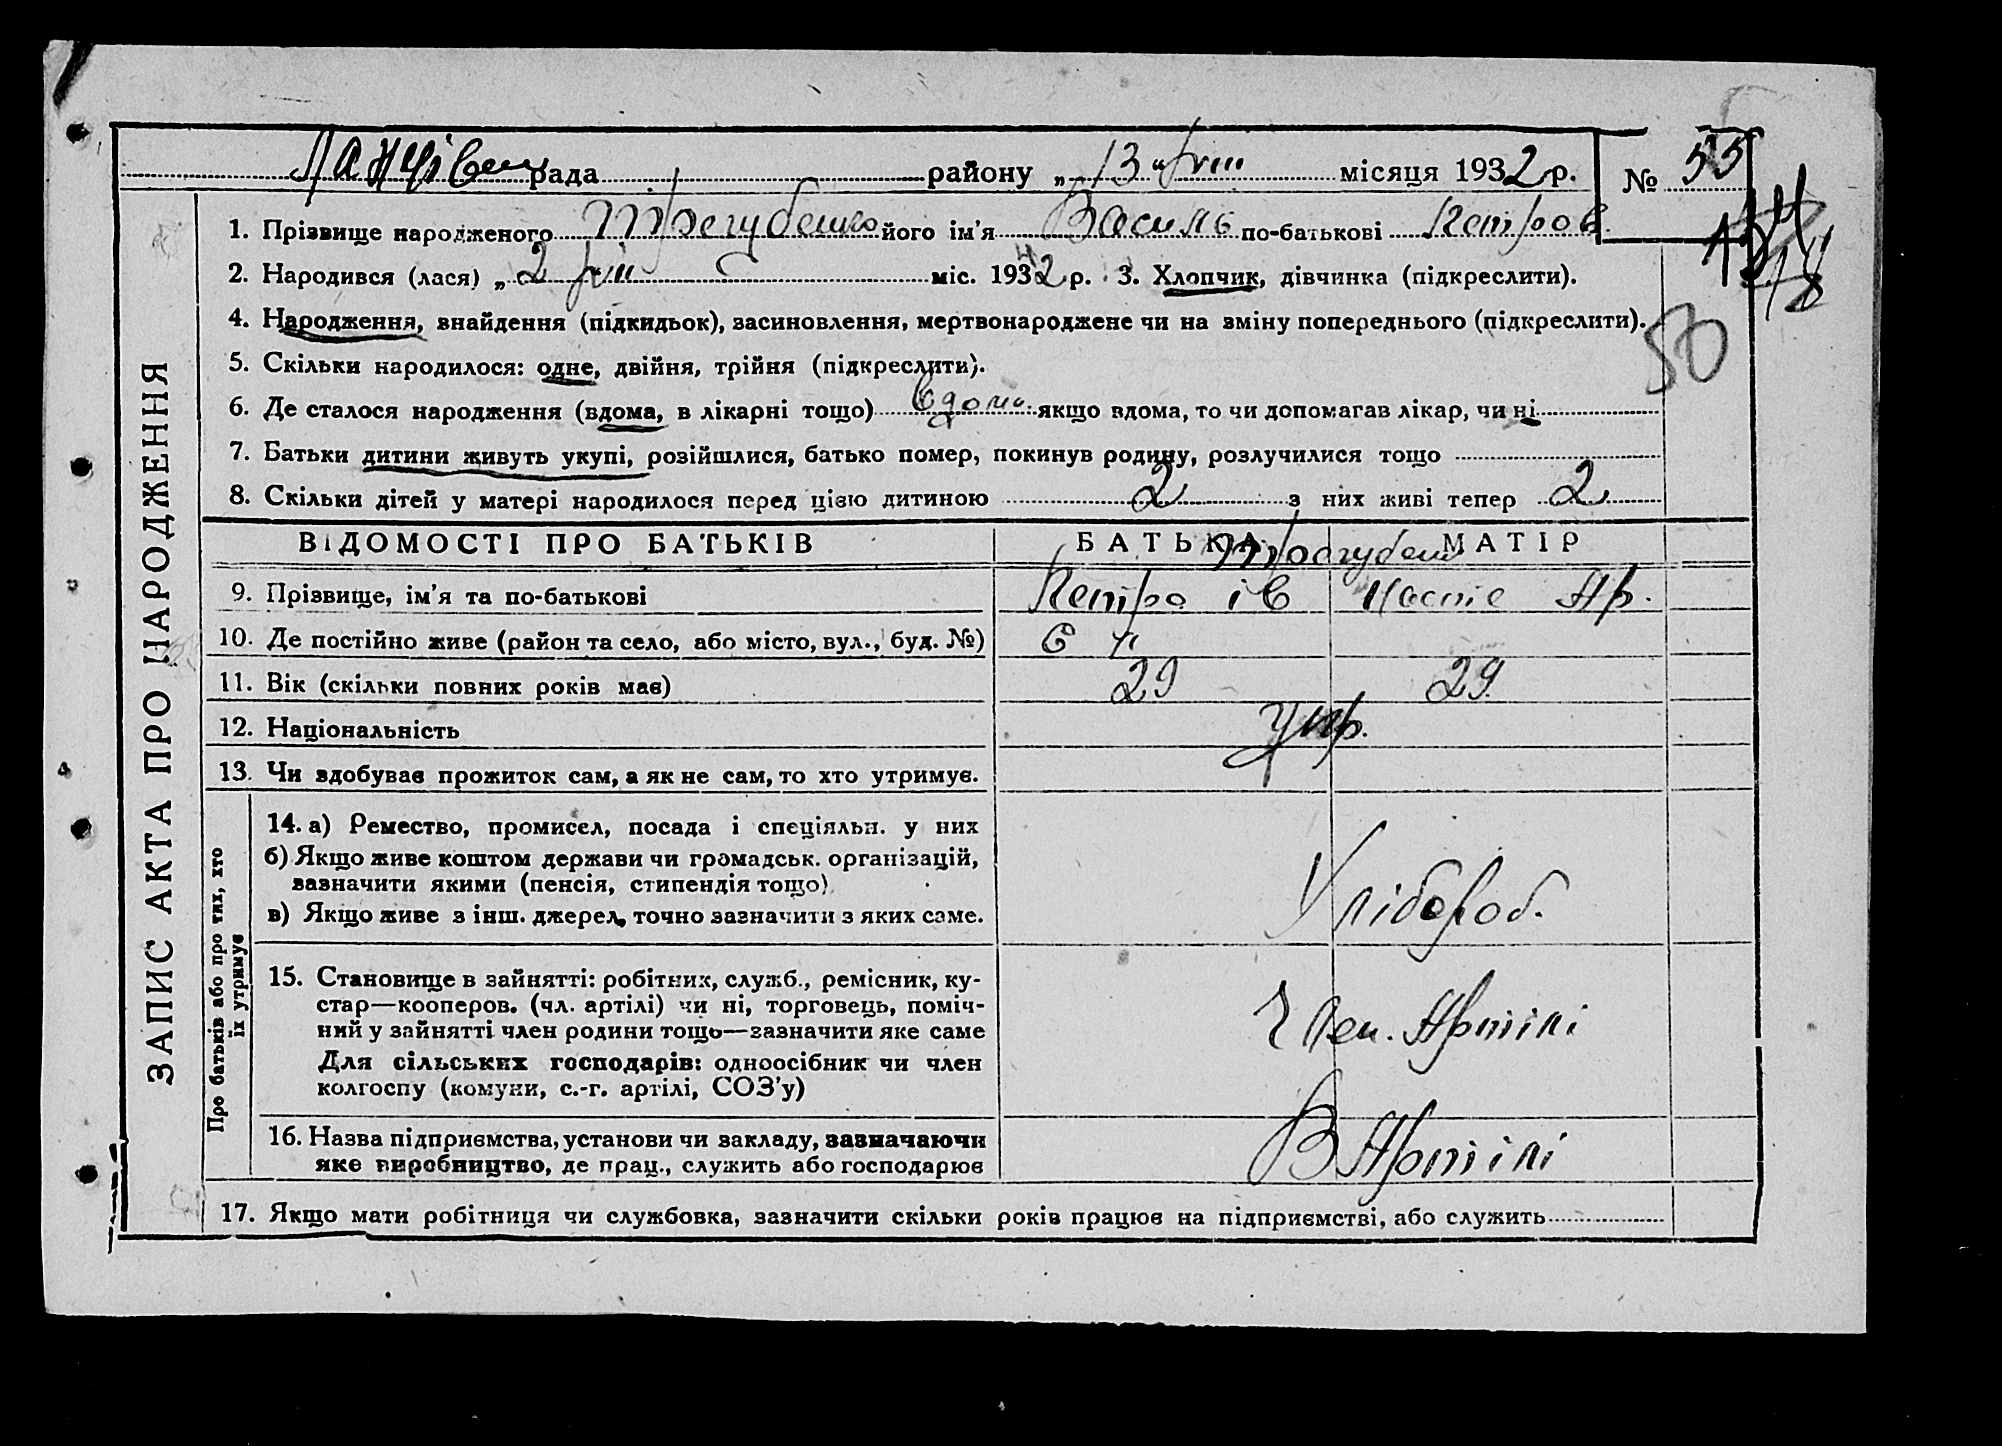 рада районуу „ 13 " VIII місяця 1932 р. № 53
1. Прізвище народженого Трегубенко його ім'я Василь по-батькові Петров.
2. Народився (лася) „ 2 VIII міс. 1932 р. 3. Хлопчик, дівчинка (підкреслити).
4. Народження, знайдення (підкидьок), засиновлення, мертвонароджене чи на зміну попереднього (підкреслити).
50
5. Скільки народилося: одне, двійня, трійня (підкреслити).
6. Де сталося народження (вдома, в лікарні тощо) вдома якщо вдома, то чи допомагав лікар, чи ні
7. Батьки дитини живуть укупі, розійшлися, батько помер, покинув родину, розлучилися тощо
8. Скільки дітей у матері народилося перед цією дитиною 2 з них живі тепер 2
ЗАПИС АКТА ПРО НАРОДЖЕННЯ
ВІДОМОСТІ ПРО БАТЬКІВ БАТЬКА МАТІР
9. Прізвище, ім'я та по-батькові Петро Ів Настя
10. Де постійно живе (район та село, або місто, вул., буд. №)
11. Вік (скільки повних років має) 29 29
12. Національність укр.
13. Чи здобуває прожиток сам, а як не сам, то хто утримує.
Про батьків або про тих, хто
їх утримує
14. а) Ремество, промисел, посада і спеціяльн. у них
б) Якщо живе коштом держави чи громадськ. організацій,
зазначити якими (пенсія, стипендія тощо)
в) Якщо живе з інш. джерел, точно зазначити з яких саме.
Хлібороб.
15. Становище в зайнятті: робітник, служб., ремісник, ку-
стар—кооперов. (чл. артілі) чи ні, торговець, поміч-
ний у зайнятті член родини тощо—зазначити яке саме
Для сільських господарів: одноосібник чи член
колгоспу (комуни, с.-г. артілі, СОЗ'у)
Член. Артілі
16. Назва підприємства, установи чи закладу, зазначаючи
яке виробництво, де прац., служить або господарює
В Артілі
17. Якщо мати робітниця чи службовка, зазначити скільки років працює на підприємстві, або служить